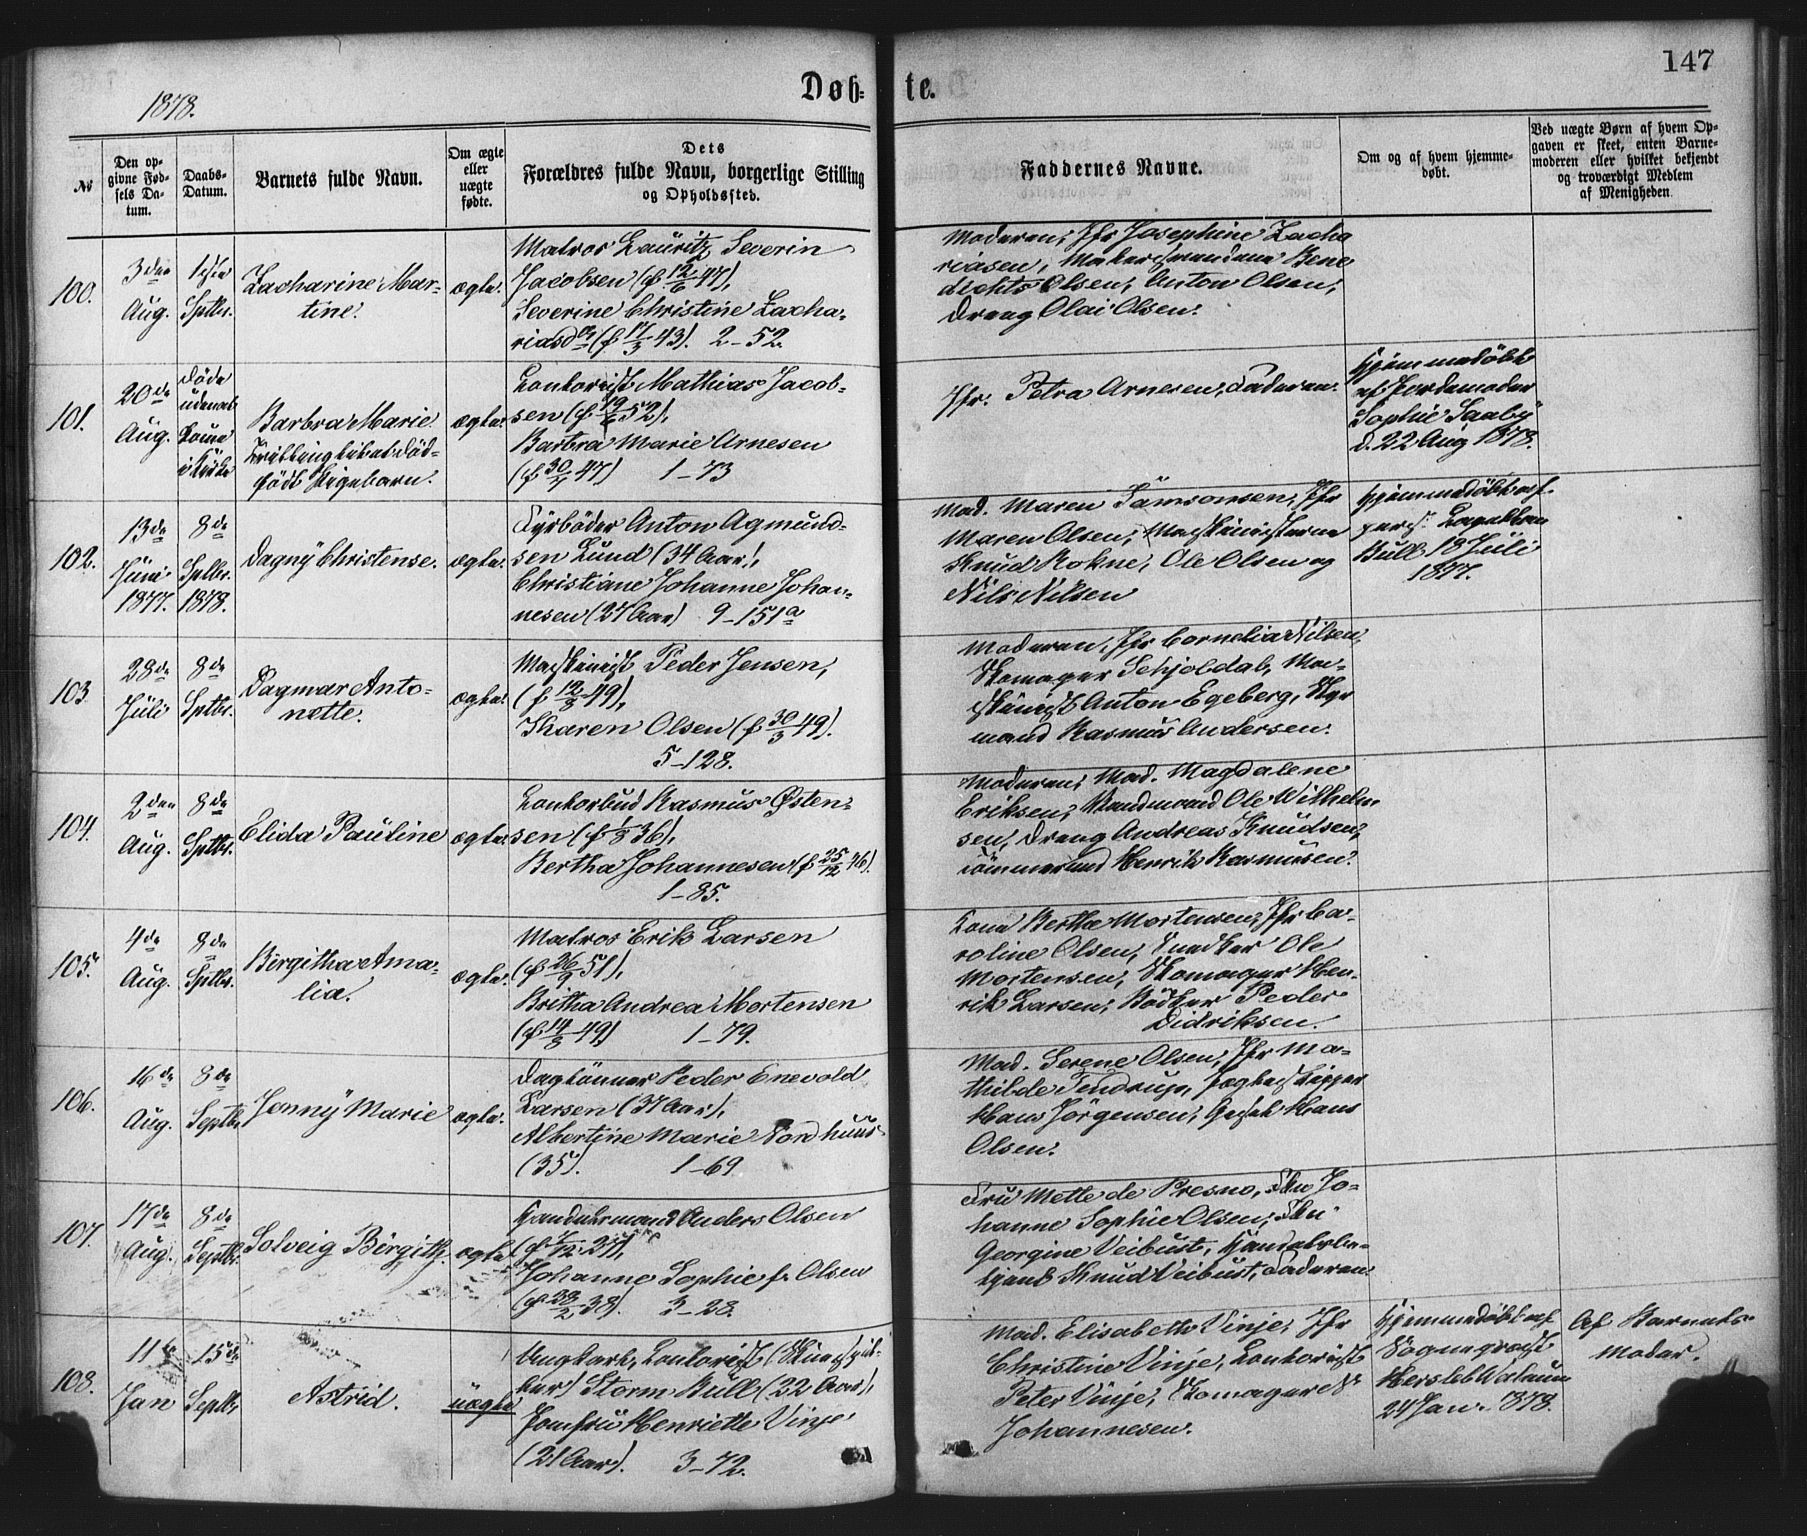 147
1878.
Døb-
te.
№
Den op-
givne Fød-
sels Da-
tum.
Daabs-
Datum.
Barnets fulde Navn.
Om ægte
eller
uægte
fødte.
Dets
Forældres fulde Navn, borgerlige Stilling
og Opholdssted.
Faddernes Navne.
Om og af hvem hjemme-
døbt.
Ved uægte Børn af hvem Op-
gaven er skeet, enten Barne-
moderen eller hvilket bekjendt
og troværdigt Medlem
af Menigheden.
100.
3die
Aug.
1ste
Sptbr.
Zacharine Mar-
tine.
ægte.
Matros Lauritz Severin
Jacobsen (f. 12/6 47),
Severine Christine Zacha-
riasdr (f. 17/3 43). 2-52.
Moderen, Jfr Josephine Zacha
riasen,
Olsen, Anton Olsen,
Dreng Olai Olsen.
101.
20de
Aug.
døde
uden at
komme
i Kirke
Barbra Marie.
Tvilling til et død-
født Pigebarn.
ægte.
Kontorist Mathias Jacob-
sen (f. 19/6 52),
Barbra Marie Arnesen
(f. 47) 1-73
Jfr. Petra Arnesen, Faderen.
Hjemmedøbt
af Jordemoder
Sophie Saaby
d. 22 Aug 1878.
102.
13de
Juni
1877.
8de
Sptbr.
1878.
Dagny Christense.
ægte.
Fyrbøder Anton Agmund-
sen Lund (34 Aar),
Christiane Johanne Johan-
nesen (27 Aar) 9-151a
Mad. Maren Samsonsen, Jfr
Maren Olsen, Maskinisterne
Knud Rokne, Ole Olsen og
Nils Nilsen
Hjemmedøbt af
pers. Kapellan
Bull 18 Juli
1877.
103.
28de
Juli
8de
Sptbr.
Dagmar Anto-
nette.
ægte.
Maskinist Peder Jensen,
(f. 12/3 49),
Karen Olsen (f. 30/3 49).
5-128.
Moderen, Jfr Cornelia Nilsen,
Skomager Schjoldab, Ma-
skinist Anton Egeberg, Styr
mand Rasmus Andersen.
104.
2den
Aug.
8de
Sptbr.
Elida Pauline
ægte.
Kontorbud Rasmus Østen-
sen (f. 1/3 36),
Bertha Johannesen (f. 25/12 46).
1-85.
Moderen, Mad. Magdalene
Eriksen, Ole Wilhelm
sen, Dreng Andreas Knudsen,
Tømmermd Henrik Rasmusen.
105.
4de
Aug.
8de
Sptbr.
Birgitha Ama-
lia.
ægte.
Matros Erik Larsen
(f. 26/9 51),
Britha Andrea Mortensen
(f. 14/3 49) 1-79.
Kone Berthe Mortensen, Jfr Ca-
roline Olsen, Snedker Ole
Mortensen, Skomager Hen-
rik Larsen, Bødker Peder
Didriksen.
106.
16de
Aug.
8de
Septbr.
Jenny Marie
ægte.
Daglønner Peder Enevold
Larsen (37 Aar),
Albertine Marie Nordhuus
(35). 1-69
Mad. Serene Olsen, Jfr Ma-
thilde Tendrup, Jægteskipper
Hans Jørgensen, Gesel Hans
Olsen.
107.
17de
Aug.
8de
Septbr.
Solveig Birgith.
ægte
Handelsmand Anders Olsen
(f. 7/12 27),
Johanne Sophie f. Olsen
(f. 28/2 38). 3-28.
Fru Mette de Presno, Frk Jo-
hanne Sophie Olsen, Frk
Georgine Veibust, Handelsbe-
tjent Knud Veibust, Faderen.
108.
11te
Jan
15de
Septbr.
Astrid.
uægte
Ungkarl, Kontorist (Skuespil-
ler) Storm Bull (22 Aar),
Jomfru Henriette Vinje
(21 Aar). 3-72.
Mad. Elisabeth Vinje, Jfr
Christine Vinje, Kontorist
Peter Vinje, Skomager N
Johannesen.
Hjemmedøbt af
Sognepræst
Hersleb Walnum
24 Jan. 1878.
Af Barnets
moder.